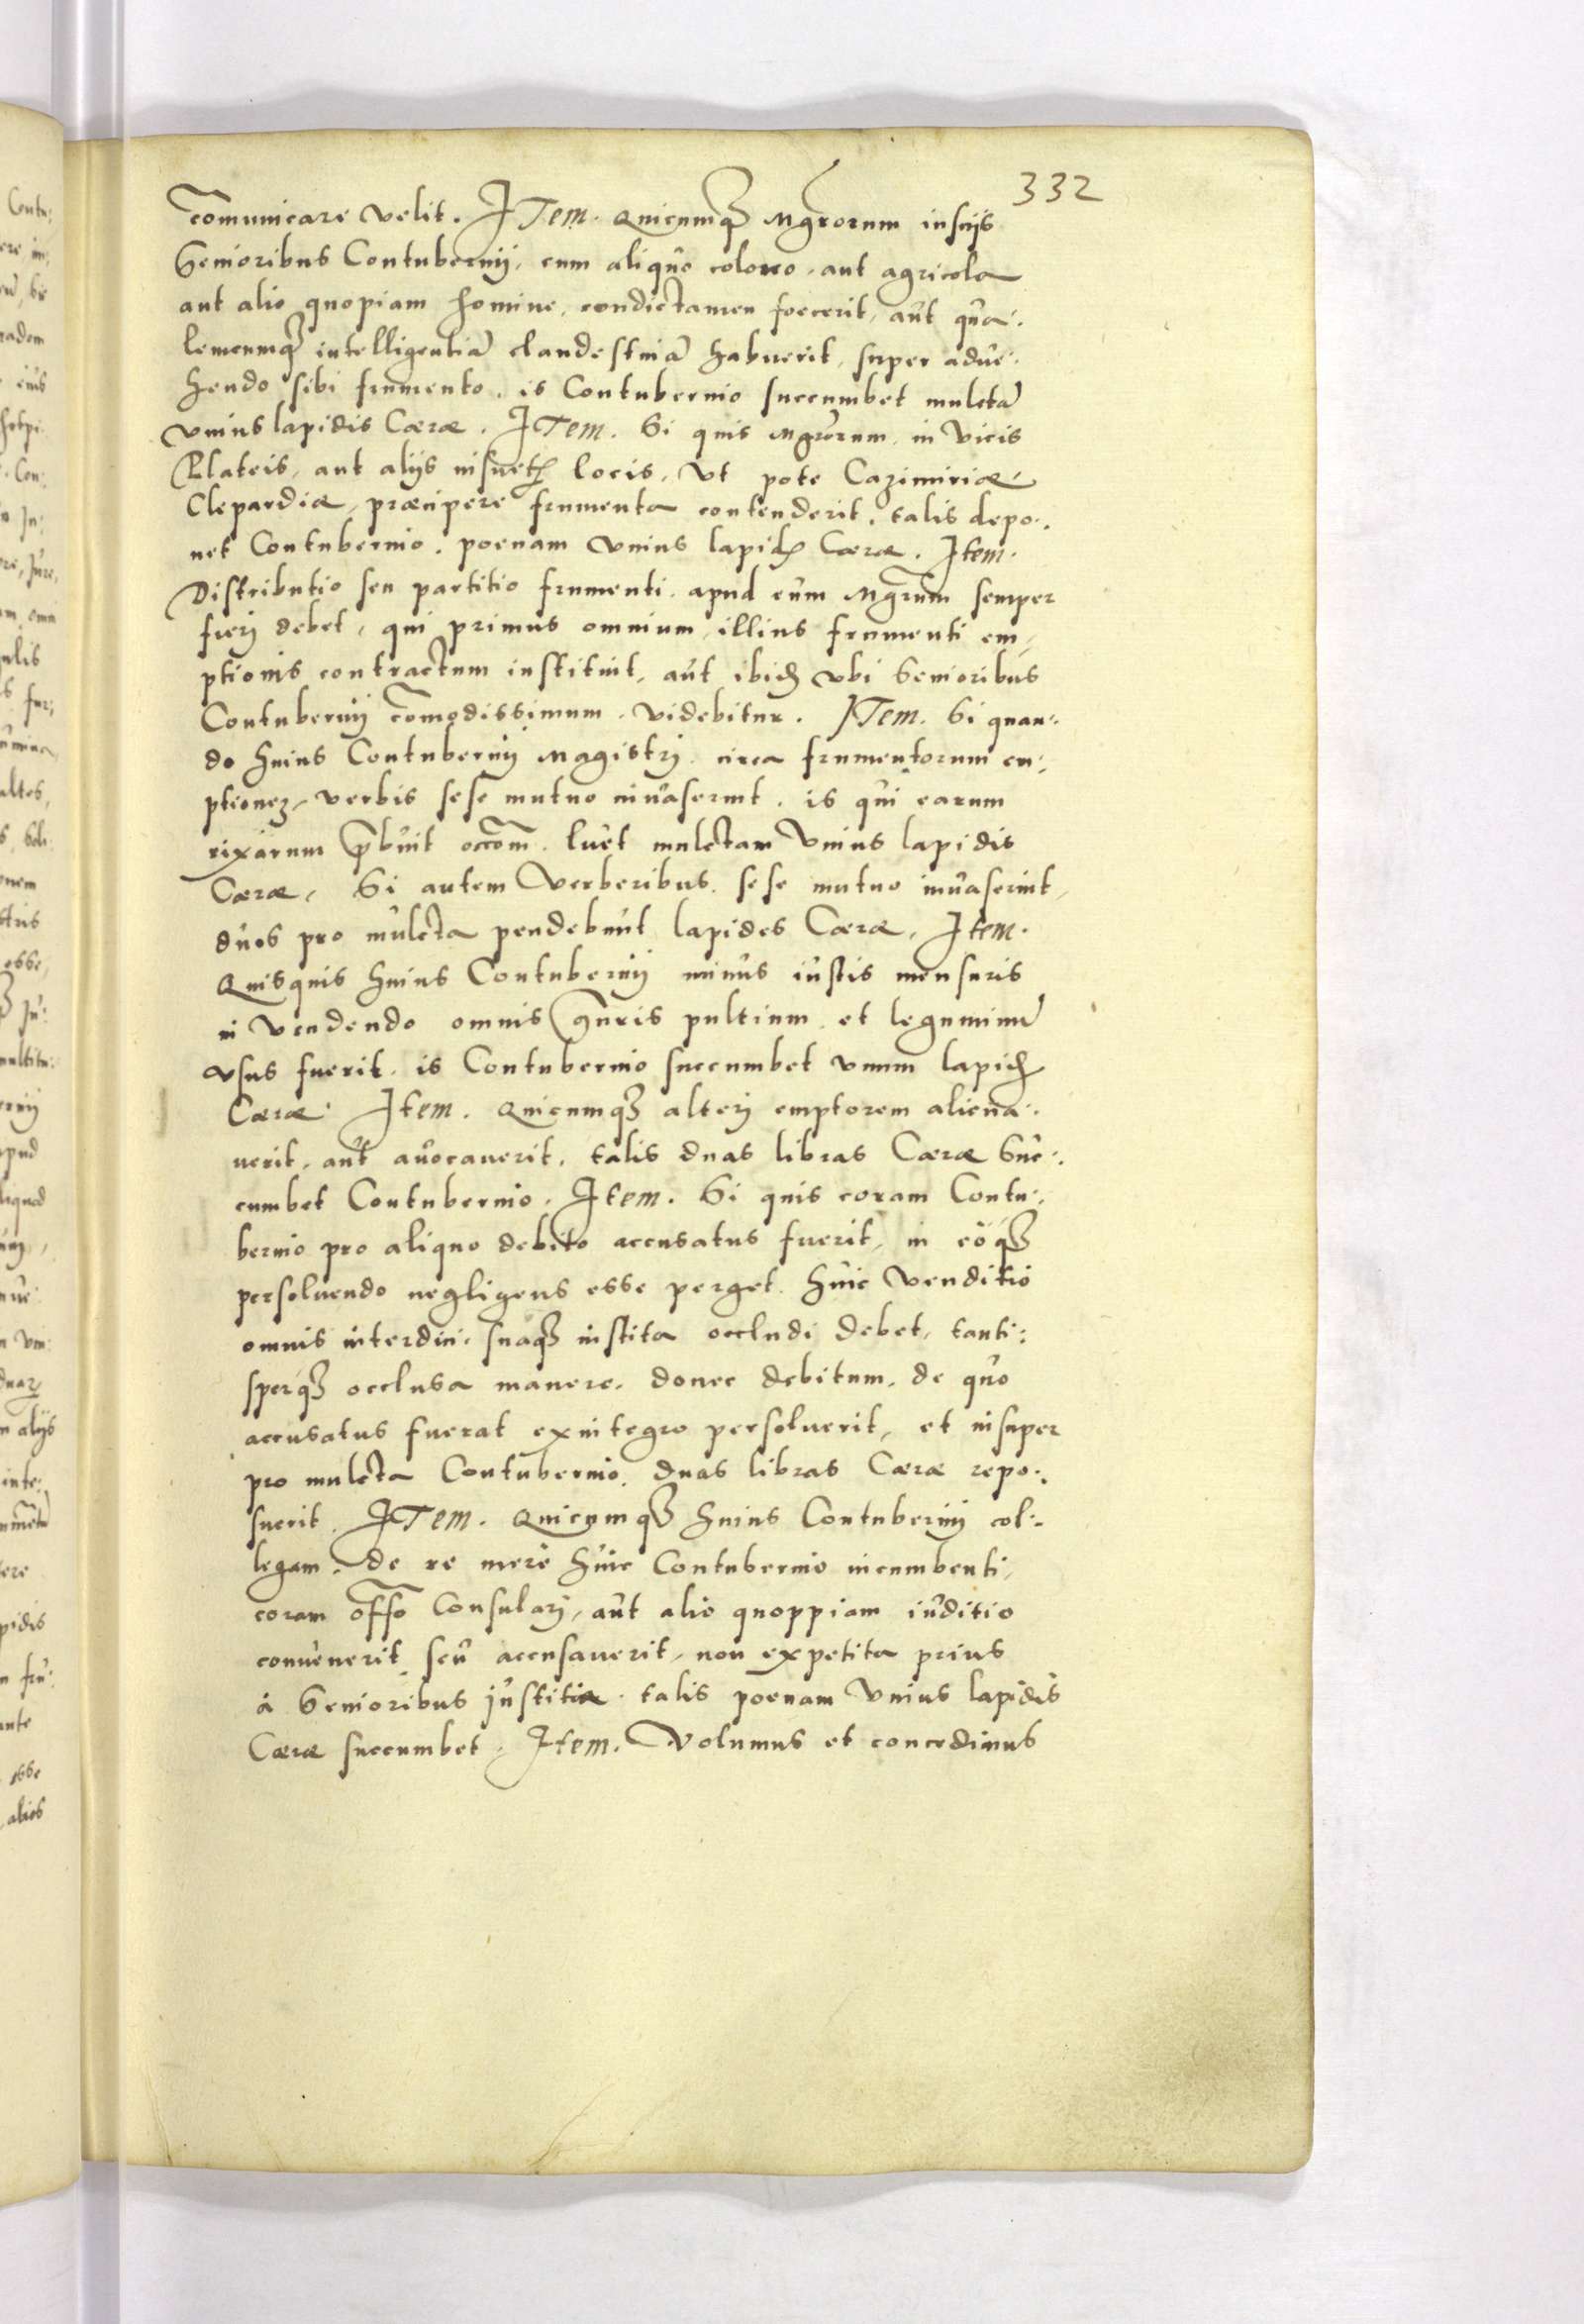 332
com̃unicare velit. ITem. Quicumqȝ Mgrõrum insciis
Senioribus Contubernij, cum aliquo colono, aut agricola
aut alio quopiam homine, condictamen foecerit, aut qua:
lemcumqȝ intelligentiã clandestinã habuerit, super adue:
hendo sibi frumento, is Contubernio succumbet mulctã
vnius lapidis Cæræ. ITem. Si quis Mgrõrum, in Vicis
Plateis, aut alijs insuetꝭ locis, Vt pote Cazimiriæ,
Clepardiæ, præcipere frumenta contenderit, talis depo:
net Contubernio, poenam Vnius lapidꝭ Cæræ. Item.
Distributio seu partitio frumenti, apud eum Mgrũm semper
fierj debet, qui primus omnium, illius frumenti em,
ptionis contractum instituit, aut ibidꝭ vbi Senioribus
Contubernij com̃odissimum, videbitur. ITem. Si quan:
do huius Contubernij Magistrj, circa frumentorum em:
ptionez, verbis sese mutuo inuaserint, is qui earum
rixarum p̃buit occom̃, luet mulctam Vnius lapidis
Cæræ, Si autem Verberibus, sese mutuo inuaserint,
duos pro mulcta pendebunt lapides Cæræ, Item.
Quisquis huius Contubernij minus iustis mensuris
in vendendo omnis gn̄ris pultium, et leguminũ
vsus fuerit, is Contubernio succumbet vnum lapidꝭ
Cæræ Item. Quicumqȝ alterj emptorem aliena:
uerit, aut auocauerit, talis duas libras Cæræ Suc:
cumbet Contubernio, Item. Si quis coram Contu:
bernio pro aliquo debito accusatus fuerit, in eóqȝ
persoluendo negligens esse perget, huic Venditio
omnis interdici, suaqȝ instita occludi debet, tanti:
sperqȝ occlusa manere, donec debitum, de quo
accusatus fuerat exintegro persoluerit, et insuper
pro mulcta Contubernio, duas libras Cæræ repo:
suerit. ITem. Quicumqȝ huius Contubernij col:
legam, de re merè huic Contubernio incumbenti,
coram off̃o Consularj, aut alio quoppiam iuditio
conuenerit seu accusauerit, non expetita prius
à Senioribus justitia, talis poenam Vnius lapidis
Cæræ succumbet, Item. Volumus et concedimus